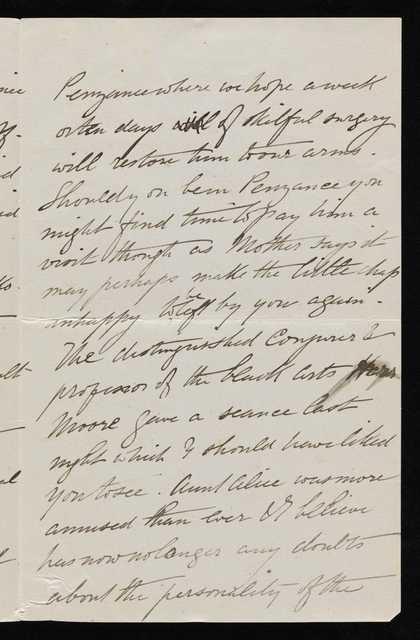 Penzance where we hope a week
or ten days of skilful surgery
will restore him to our arms.
Should you be in Penzance you
might find time to pay him a
visit though as Mother says it
may perhaps make the little chap
unhappy to be left by you again.
The distinguished Conjurer &
professor of the black arts Herr
Moore gave a seance last
night which I should have liked
you to see. Aunt Alice was more
amused than ever & I believe
has now no longer any doubts
about the personality of the